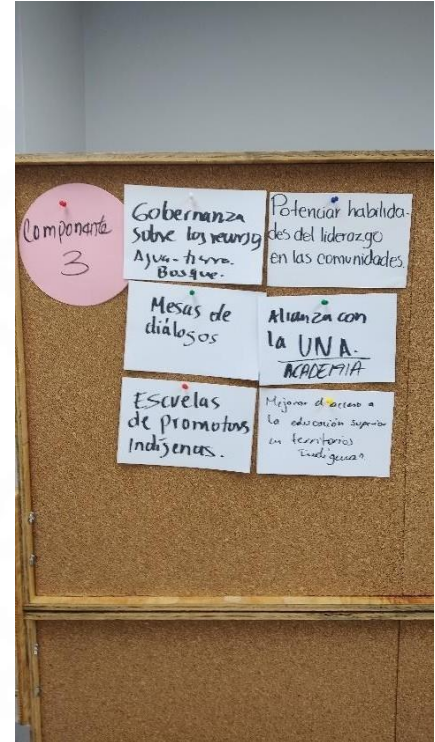 Componente
3
Gobernanza
sobre los recursos
Agua-tierra.
Bosque.
Potenciar habilida-
des del liderazgo
en las comunidades.
Mesas de
diálogos
Alianza con
la UNA.
ACADEMIA
Escuelas
de promotores
Indígenas.
Mejorar el acceso a
la educación superior
en territorios
Indígenas